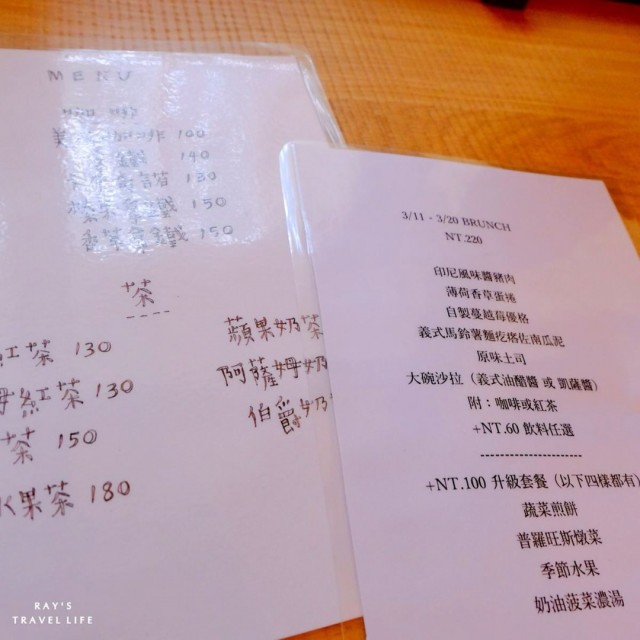 MENU
咖啡
100
140
130
拿鐵 150
香草拿鐵 150
茶
紅茶 130
紅茶 130
茶 150
水果茶 180
蘋果奶茶
阿薩姆奶
伯爵奶
3/11 - 3/20 BRUNCH
NT.220
印尼風味醬豬肉
薄荷香草蛋捲
自製蔓越莓優格
義式馬鈴薯麵疙瘩佐南瓜泥
原味土司
大碗沙拉（義式油醋醬 或 凱薩醬）
附：咖啡或紅茶
+NT.60 飲料任選
+NT.100 升級套餐（以下四樣都有）
蔬菜煎餅
普羅旺斯燉菜
季節水果
奶油菠菜濃湯
RAY'S
TRAVEL LIFE